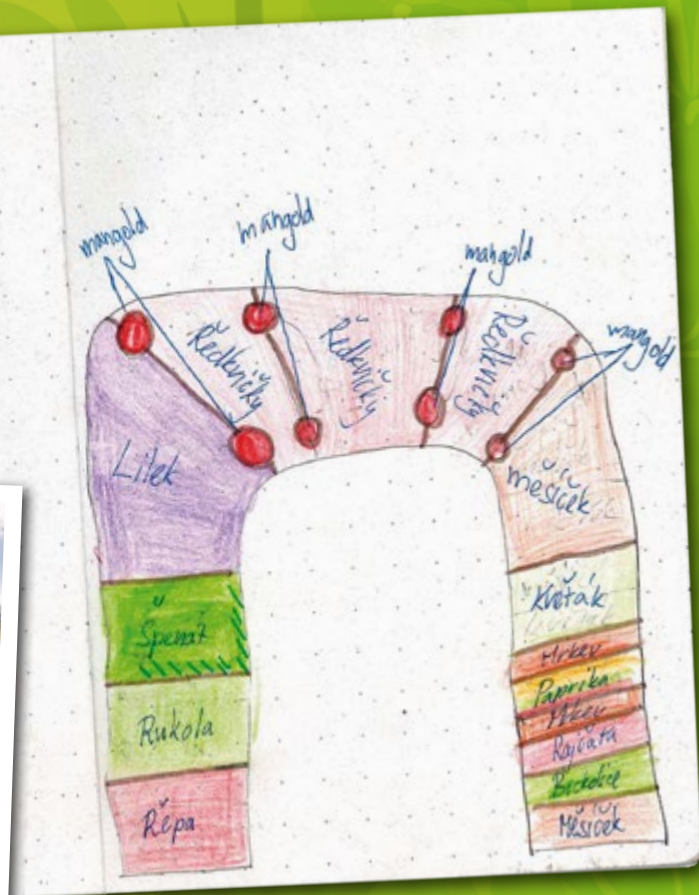 mangold
mangold
mangold
mangold
Ředkvičky
Ředkvičky
Ředkvičky
Lilek
měsíček
Špenát
Květák
Mrkev
Rukola
Paprika
Mrkev
Rajčata
Řepa
Brokolice
Měsíček